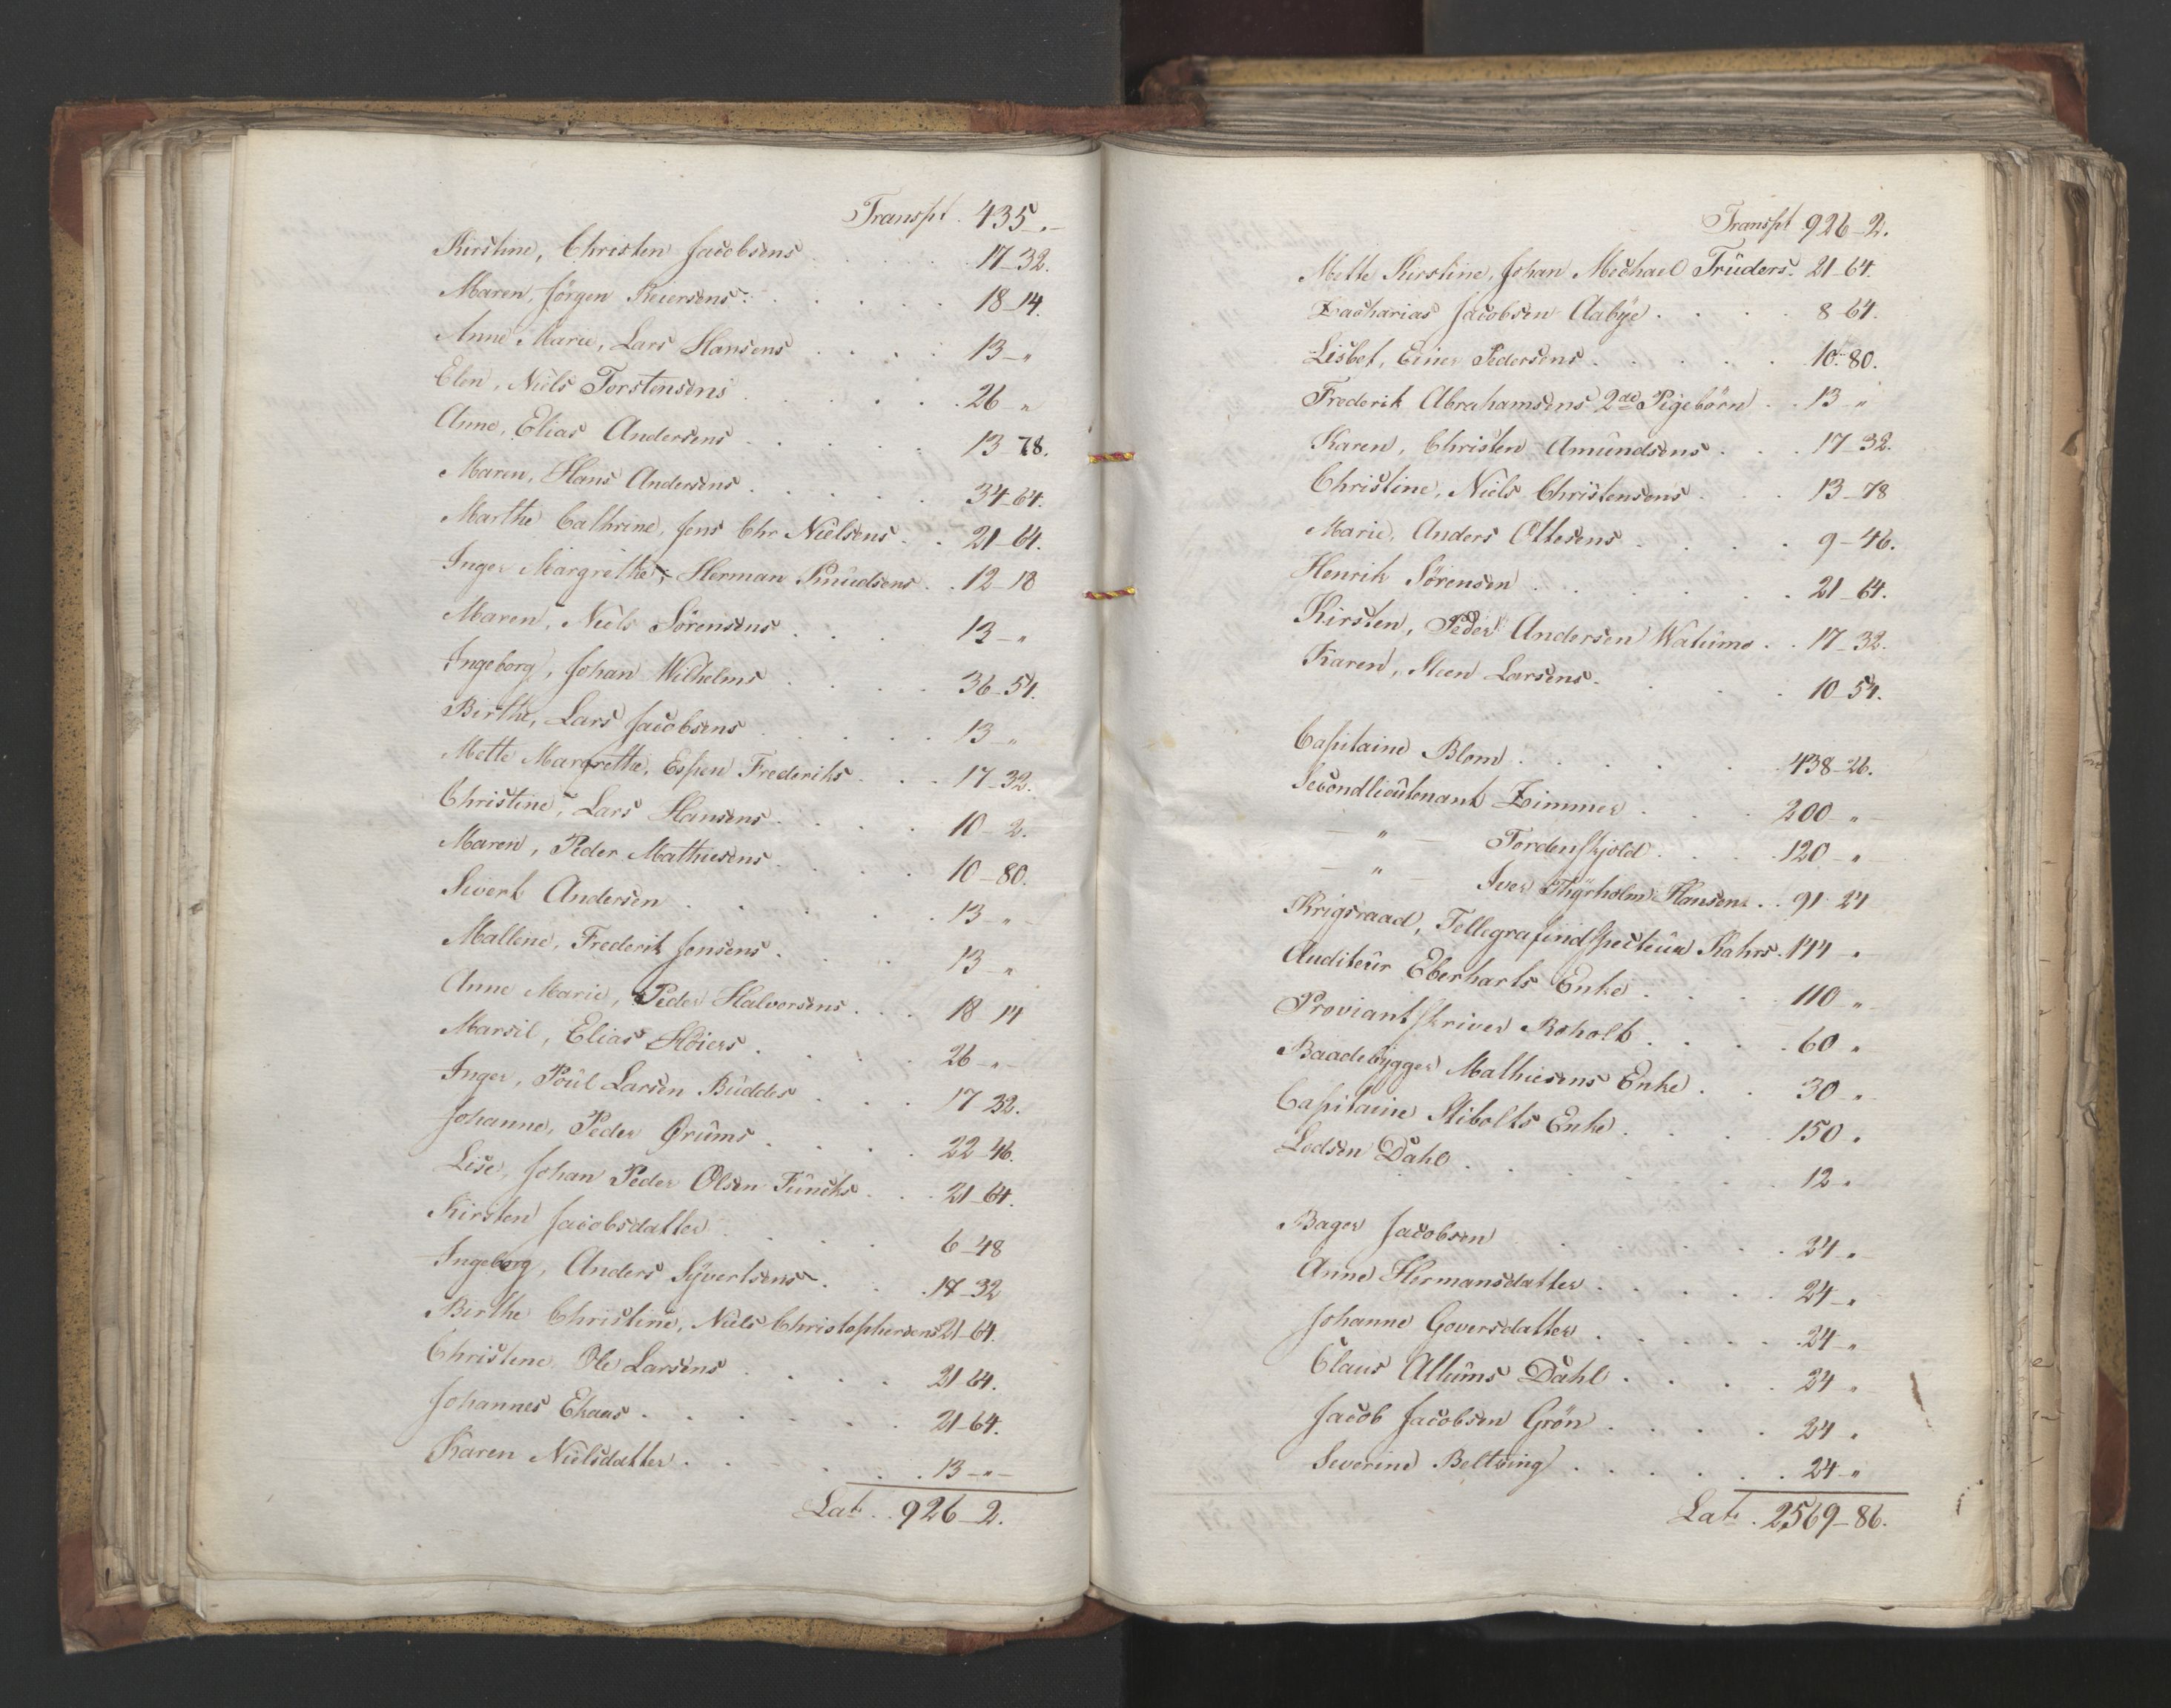 Transpt. 435_"_
Kirstine, Christen Jacobsens . . . 17_32.
Maren, Jörgen Reiersens . . . . 18_14.
Anne Marie, Lars Hansens . . . . 13_"
Elen, Niels Torstensens . . . . . 26_"
Anne, Elias Andersens . . . . 13_78.
Maren, Hans Andersens . . . . . 34_64.
Marthe Cathrine, Jens Chr Nielsens . . 21_64.
Inger Margrethe, Herman Knudsens . . 12_18
Maren, Niels Sörensens . . . 13_"
Ingeborg, Johan Wilhelms . . . . 36_54.
Birthe, Lars Jacobsens . . . . . 13_"
Mette Margrethe, Espen Frederiks . . . 17_32.
Christine, Lars Hansens . . . . 10_2.
Maren, Peder Mathiesens . . . . 10_80.
Sivert Andersen . . . . . . 13_"_
Mallene, Frederik Jensens . . . . 13_"
Anne Marie, Peder Halvorsens . . . 18_14
Marsil, Elias Höiers . . . . 26_"_
Inger, Poul Larsen Buddes . . . 17_32.
Johanne, Peder Örums . . . . 22_46.
Lise, Johan Peder Olsen Funcks . . . 21_64.
Kirsten Jacobsdatter . . . . 6_48
Ingeborg, Anders Syvertsens . . . 17_32
Birthe Christine, Niels Christophersens 21_64.
Christene Ole Larsens . . . . 21_64.
Johannes Ehaus . . . . . . 21_64.
Karen Nielsdatter . . . . . 13_"_
Lat. . . 926_2.
Transpt 926_2.
Mette Kirstine, Johan Michael Truders. 21_64.
Zacharias Jacobsen Aabye . . . . 8_64.
Lisbet, Einer Pedersens . . . . . 10_80.
Frederik Abrahamsens 2de Pigebörn . . 13_"
Karen, Christen Amundsens . . . 17_32.
Christine, Niels Christensens . . . 13_78
Marie, Anders Ottesens . . . . 9_46.
Henrik Sörensen . . . . . . 21_64.
Kirsten, Peder Andersen Watums . . 17_32.
Karen, Steen Larsens . . . . 10_54.
Capitaine Blom . . . . . 438_26.
Secondlieutenant Zimmer . . . 200_"_
_ " _ Tordenskjold . . . 120_"_
_ " _ Iver Thyrholm Hansens . . 91_24
Krigsraad, Tellegrafindspecteur Kahrs. 144_"
Auditeur Eberharts Enke . . . . 110_"
Proviantskriver Roholt . . . . 60_"
Baadebygger Mathiesens Enke . . 30_"_
Capitaine Stibolts Enke . . . . 150_"
Lodsen Dahl . . . . . . 12_"
Bager Jacobsen . . . . . . 24_"_
Anne Hermansdatter . . . . . 24_"
Johanne Goversdatter . . . . . 24_"
Claus Altums Dahl . . . . 24_"
Jacob Jacobsen Grön . . . . . 24_"
Severine Beltzing . . . . . 24_"
Lat. . 2569_86.